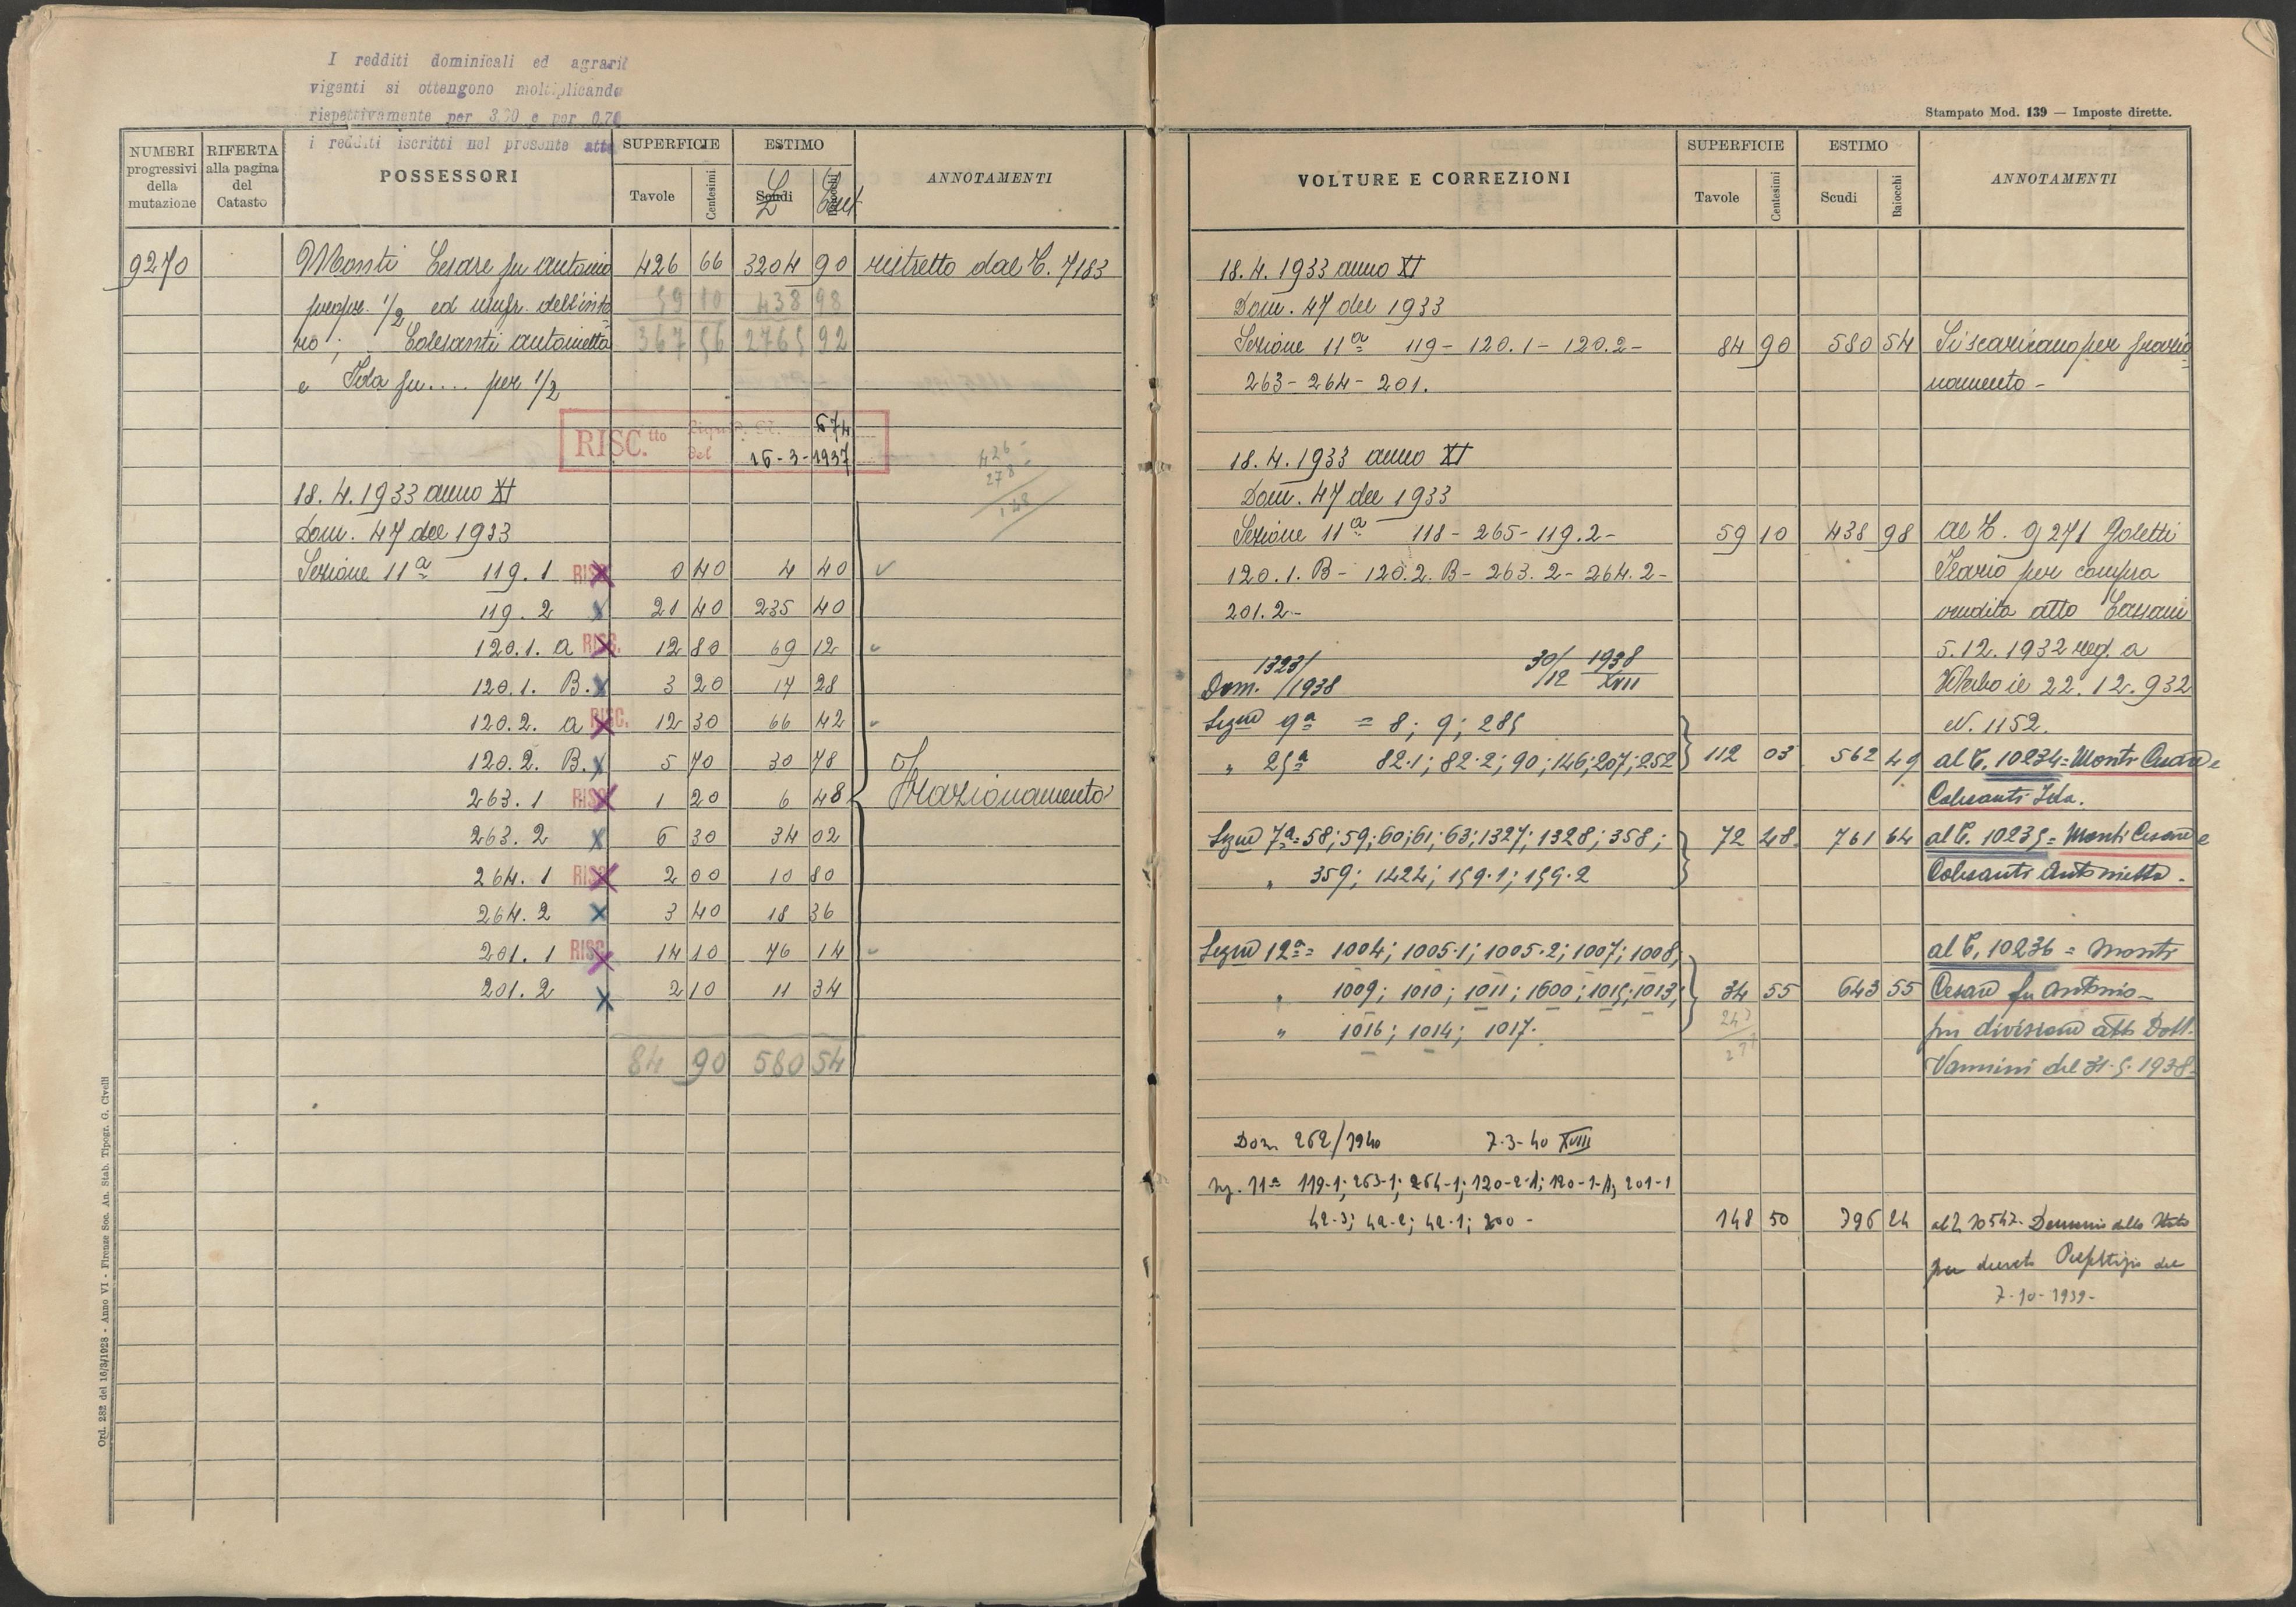 I redditi dominicali ed agrarii
vigenti si ottengono moltiplicando
rispettivamente per 3,30 e per 0,70
i redditi iscritti nel presente atto
NUMERI progressivi della mutazione
RIFERTA alla pagina del Catasto
POSSESSORI
SUPERFICIE
Tavole Centesimi
ESTIMO
Scudi Baiocchi
£ Cent
ANNOTAMENTI
9270 Monti Cesare fu Antonio 426 66 3204 90 ristretto dal C. 7183
propr. 1/2 ed usufr. dell'inte 59 10 438 98
ro ; Colesanti Antonietta 367 56 2765 92
e Ida fu .... per 1/2
RISC.tto Liquid. 674
del 16-3-1937
426
278
148
18.4.1933 anno XI
Dom. 47 del 1933
Sezione 11a 119.1 RISC. 0 40 4 40
119.2 21 40 235 40
120.1. a RISC. 12 80 69 12
120.1. B. 3 20 17 28
120.2. a RISC. 12 30 66 42
120.2. B. 5 70 30 78
263.1 RISC. 1 20 6 48 Frazionamento
263.2 6 30 34 02
264.1 RISC. 2 00 10 80
264.2 3 40 18 36
201.1 RISC. 14 10 76 14
201.2 2 10 11 34
84 90 580 54
Ord. 282 del 16/3/1928 - Anno VI - Firenze Soc. An. Stab. Tipogr. G. Civelli
Stampato Mod. 139 — Imposte dirette.
VOLTURE E CORREZIONI
SUPERFICIE
Tavole Centesimi
ESTIMO
Scudi Baiocchi
ANNOTAMENTI
18.4.1933 anno XI
Dom. 47 del 1933
Sezione 11a 119 - 120.1 - 120.2 - 84 90 580 54 Si scaricano per frazio
263 - 264 - 201. namento -
18.4.1933 anno XI
Dom. 47 del 1933
Sezione 11a 118 - 265 - 119.2 - 59 10 438 98 al C. 9271 Goletti
120.1. B - 120.2. B - 263.2 - 264.2 - Ilario per compra
201.2 - vendita atto Cassani
5.12.1932 reg. a
Dom. 1323/1938 30/12 1938 XVII Viterbo il 22.12.932
Sezne 9a = 8; 9; 285 N. 1152.
" 25a 82.1; 82.2; 90; 146; 207; 252 112 03 562 49 al C. 10234 = Monti Cesare e
Colesanti Ida.
Sezne 7a = 58; 59; 60; 61; 63; 1327; 1328; 358; 72 48 761 64 al C. 10235 = Monti Cesare e
" 359; 1424; 159.1; 159.2 Colesanti Antonietta.
Sezne 12a = 1004; 1005.1; 1005.2; 1007; 1008; al C. 10236 = Monti
" 1009; 1010; 1011; 1600; 1015; 1013; 34 55 643 55 Cesare fu Antonio -
" 1016; 1014; 1017. per divisione atto Dott.
Vannini del 31.5.1938.
Dom 262/1940 7-3-40 XVIII
Sez. 11a 119-1; 263-1; 264-1; 120-2-A; 120-1-A; 201-1
42-3; 42-2; 42-1; 200 - 148 50 796 24 al C 10547. Demanio dello Stato
per decreto Prefettizio del
7-10-1939-